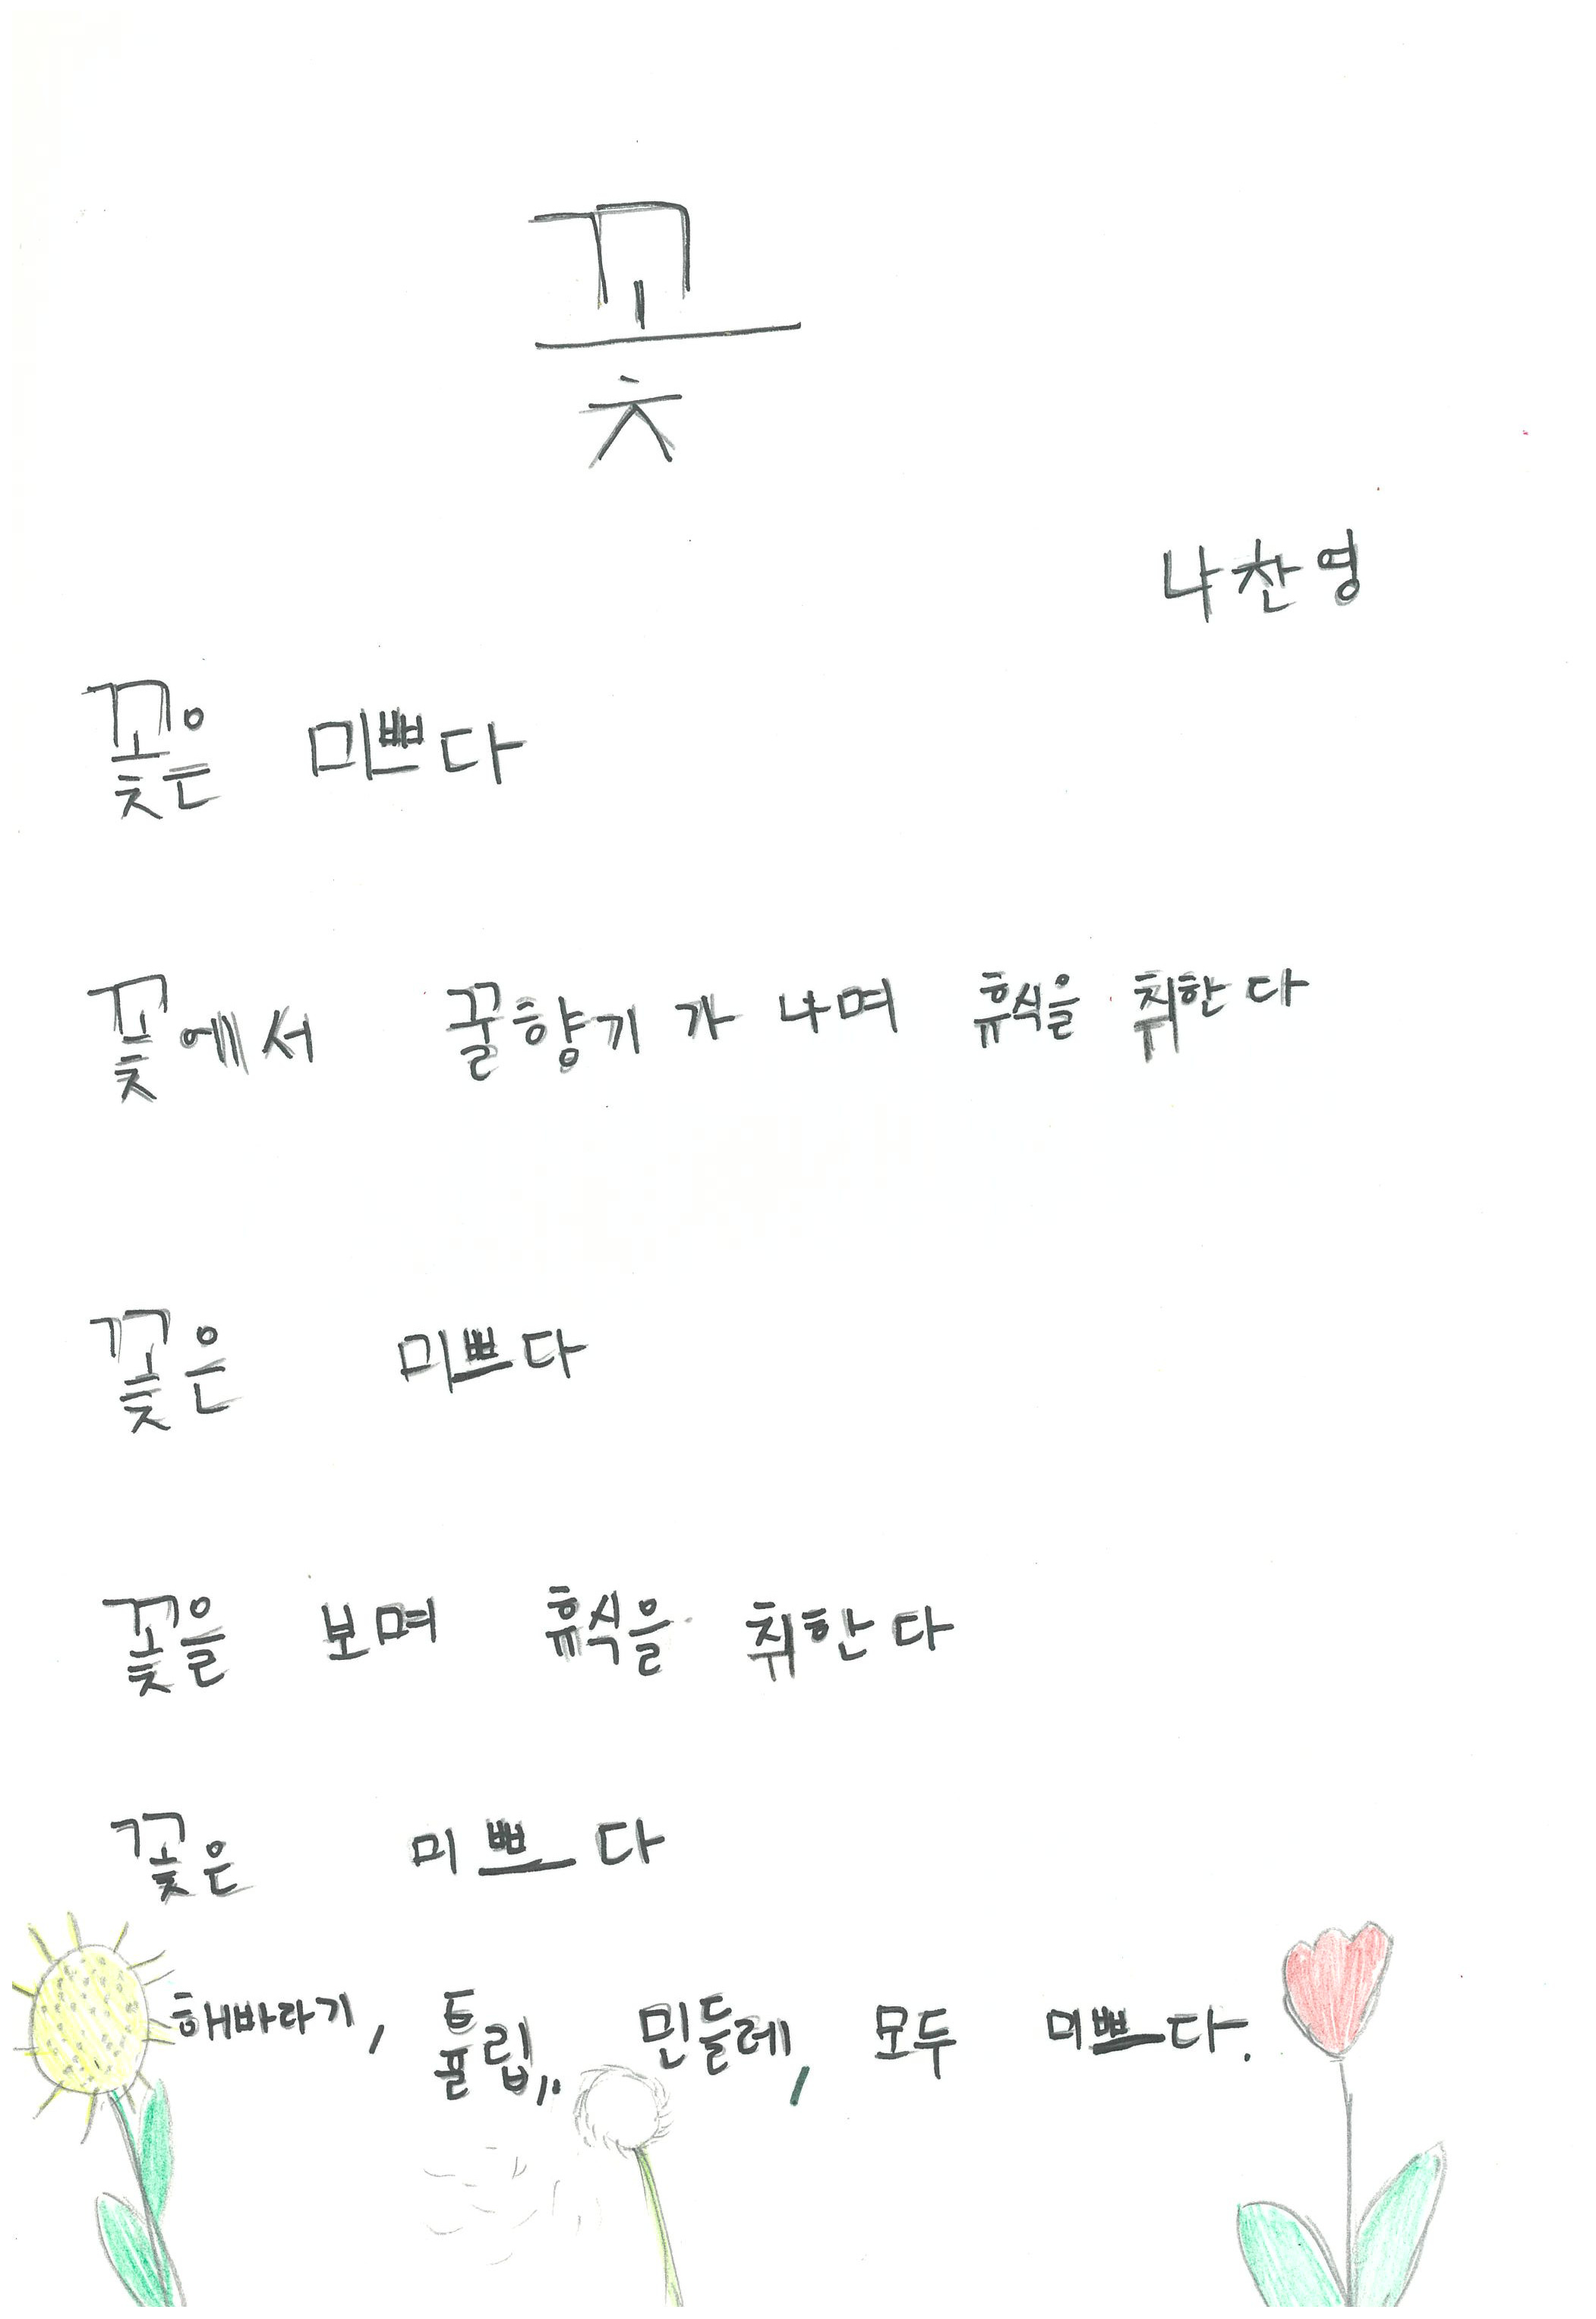 꽃
나찬영
꽃은 미쁘다
꽃에서 꿀향기가 나며 휴식을 취한다
꽃은 미쁘다
꽃을 보며 휴식을 취한다
꽃은 미쁘다
해바라기, 튤립, 민들레, 모두 미쁘다.